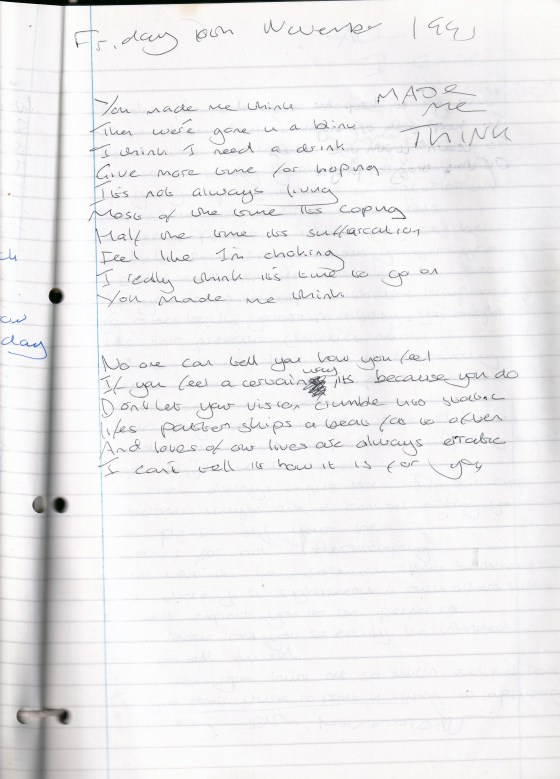 Friday November 199
MADE
ME
THINK
You made me think
Then were gone in a blink
I think I need a drink
Give more time for hoping
It's not always living
Most of the time its coping
Half the time its suffarcation
Feel like I'm choking
I really think it's time to go on
You made me think
No one can tell you how you feel
If you feel a certain way its because you do
Don't let your vision crumble into static
lifes patter skips a beat far to often
And loves of our lives are always erratic
I can't tell is how it is for you
day